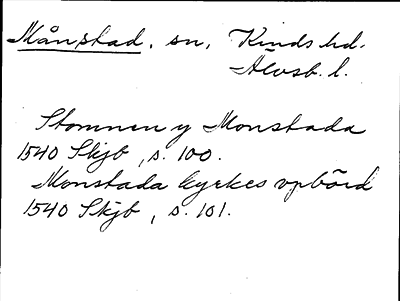 Månstad, sn, Kinds hd.
Älvsb. l.
Stomnen y Monstada
1540 Skjb, s. 100.
Monstada kyrkes vpbörd
1540 Skjb, s. 101.